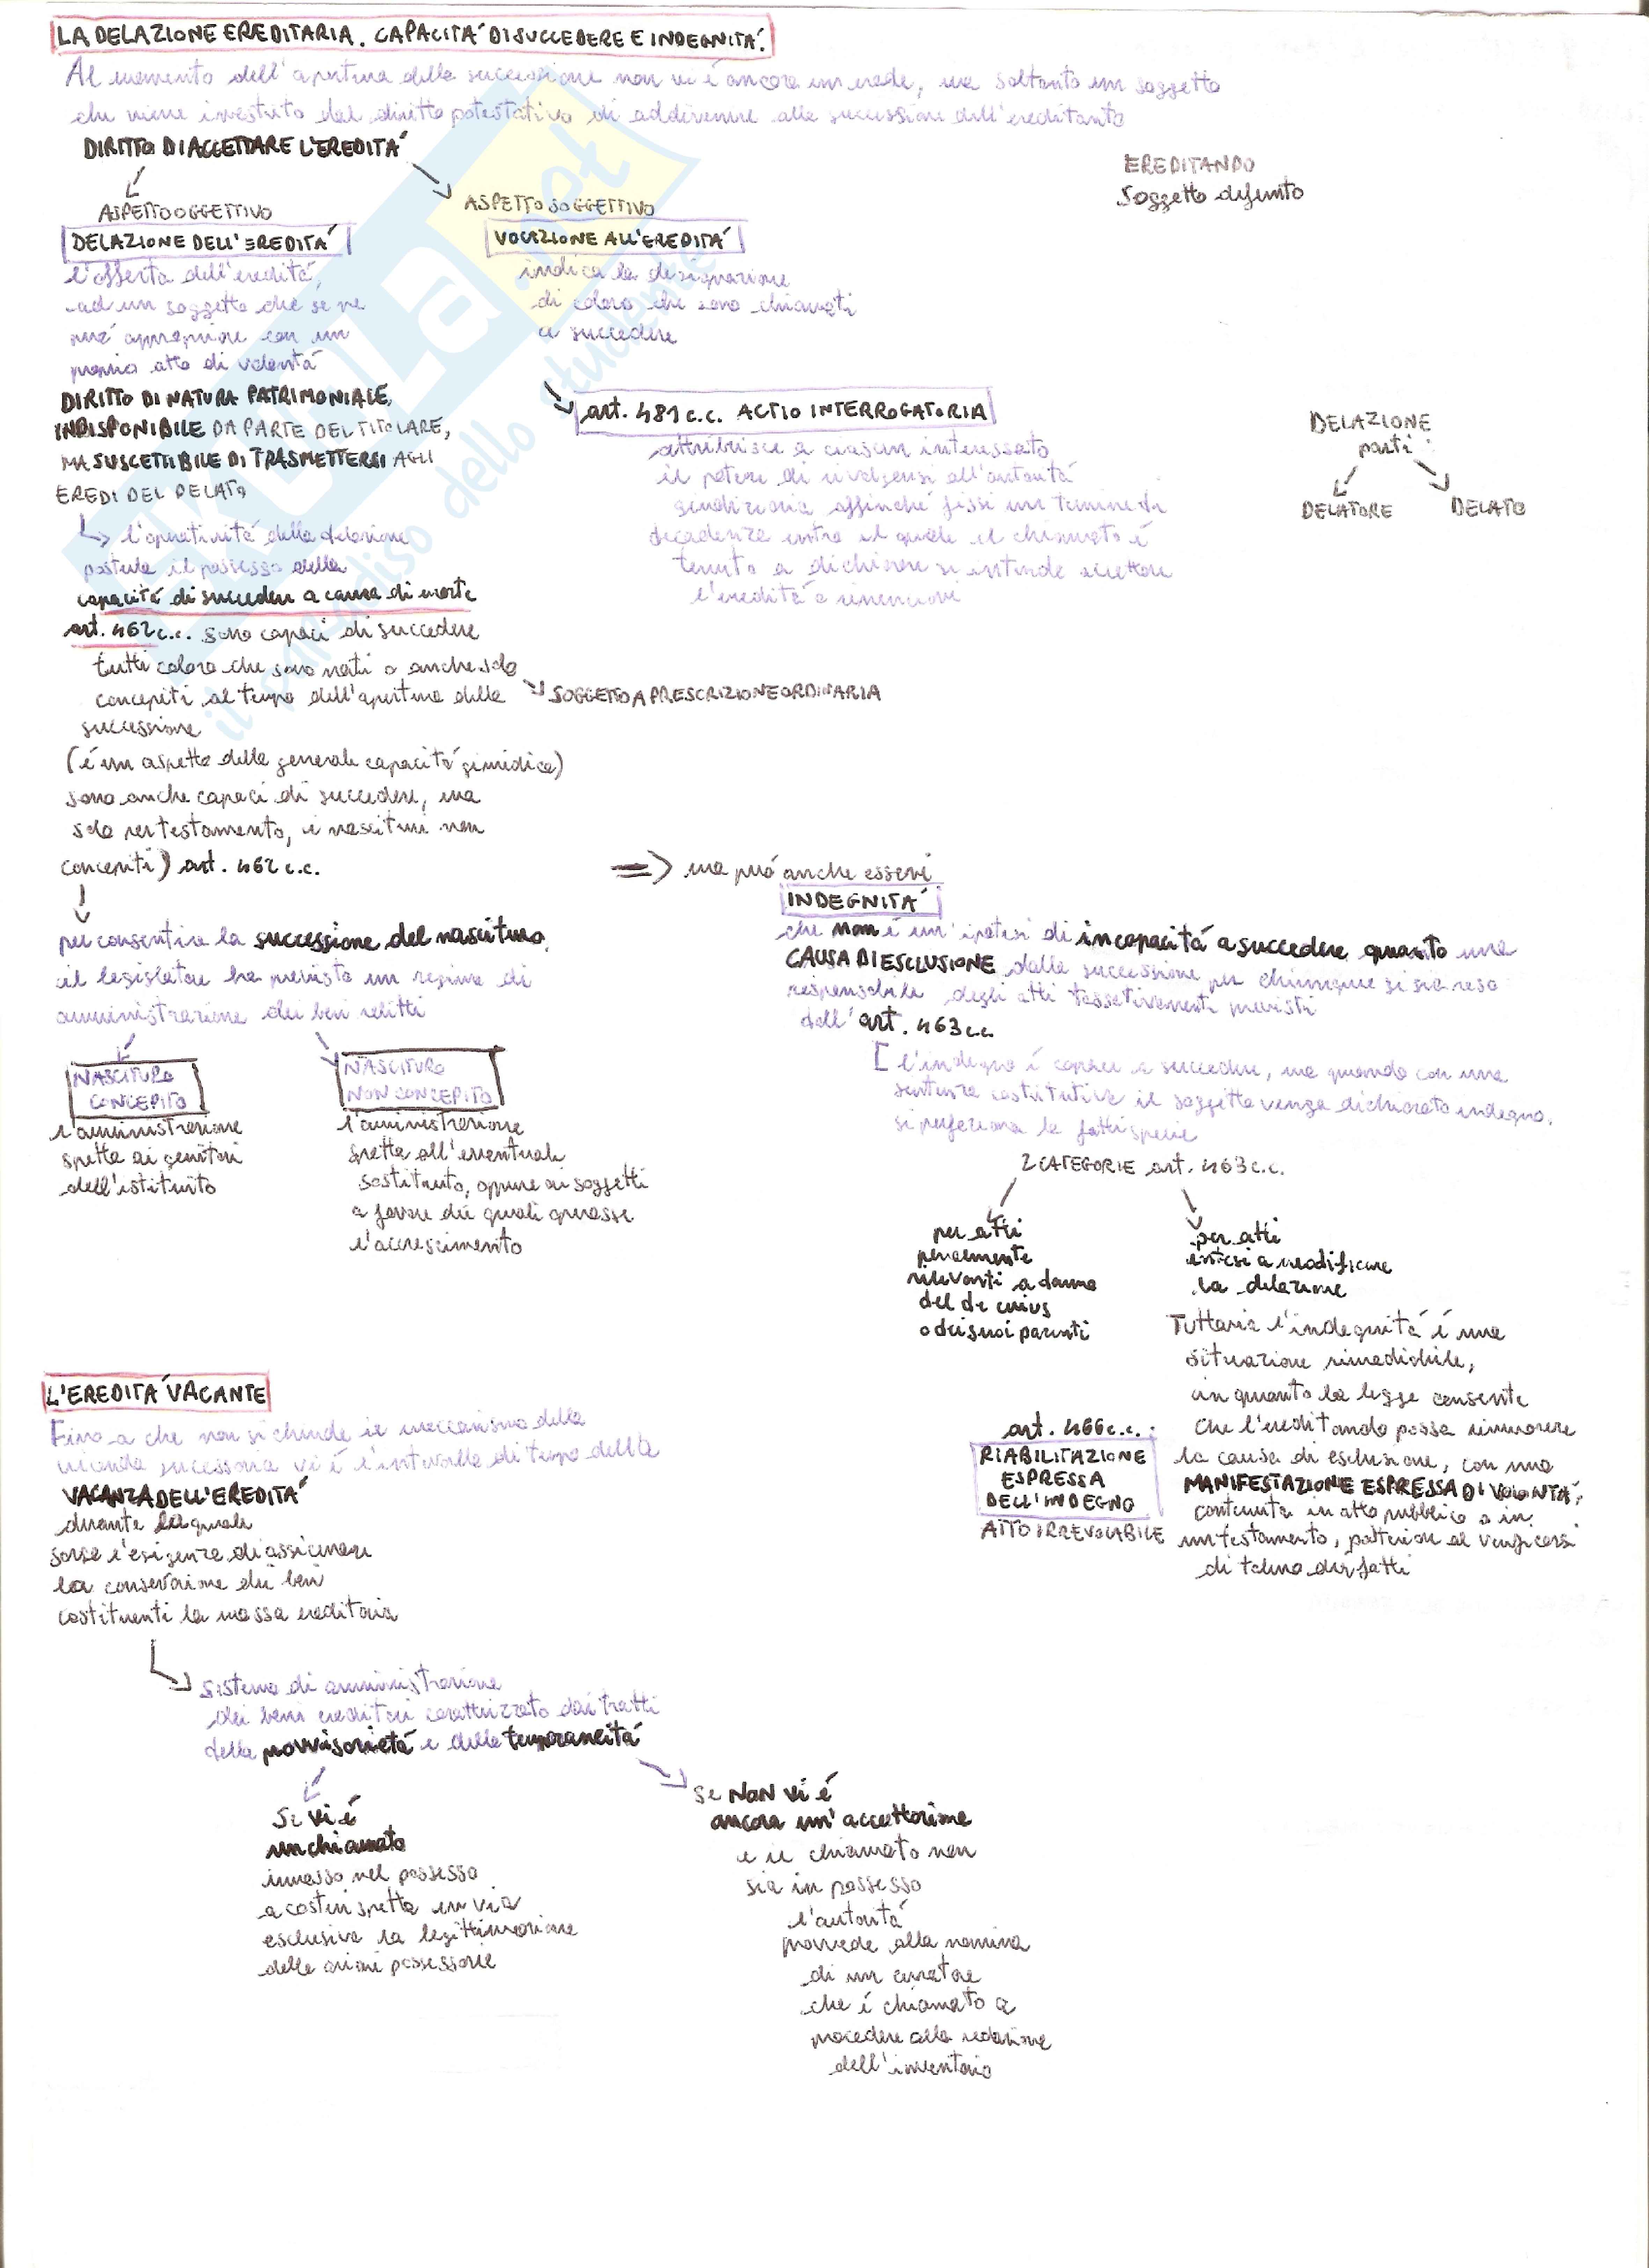 LA DELAZIONE EREDITARIA. CAPACITÀ DI SUCCEDERE E INDEGNITÀ.
Al momento dell'apertura della successione non vi è ancora un erede, ma soltanto un soggetto
che viene investito del diritto potestativo di addivenire alla successione dell'ereditando
DIRITTO DI ACCETTARE L'EREDITÀ
EREDITANDO
Soggetto defunto
ASPETTO OGGETTIVO
DELAZIONE DELL'EREDITÀ
l'offerta dell'eredità,
ad un soggetto che se ne
può appropriare con un
proprio atto di volontà
DIRITTO DI NATURA PATRIMONIALE,
INDISPONIBILE DA PARTE DEL TITOLARE,
MA SUSCETTIBILE DI TRASMETTERSI AGLI
EREDI DEL DELATO
ASPETTO SOGGETTIVO
VOCAZIONE ALL'EREDITÀ
indica la designazione
di coloro che sono chiamati
a succedere
art. 481 c.c. ACTIO INTERROGATORIA
attribuisce a ciascun interessato
il potere di rivolgersi all'autorità
giudiziaria affinché fissi un termine di
decadenza entro il quale il chiamato è
tenuto a dichiarare se intende accettare
l'eredità o rinunciare
DELAZIONE
parti:
DELATORE DELATO
l'operatività della delazione
postula il possesso della
capacità di succedere a causa di morte
art. 462 c.c. sono capaci di succedere
tutti coloro che sono nati o anche solo
concepiti al tempo dell'apertura della
successione
SOGGETTO A PRESCRIZIONE ORDINARIA
(è un aspetto della generale capacità giuridica)
sono anche capaci di succedere, ma
solo per testamento, i nascituri non
concepiti) art. 462 c.c.
per consentire la successione del nascituro,
il legislatore ha previsto un regime di
amministrazione dei beni relitti
NASCITURO
CONCEPITO
l'amministrazione
spetta ai genitori
dell'istituito
NASCITURO
NON CONCEPITO
l'amministrazione
spetta all'eventuale
sostituto, oppure ai soggetti
a favore dei quali operasse
l'accrescimento
=> ma può anche esservi
INDEGNITÀ
che non è un'ipotesi di incapacità a succedere quanto una
CAUSA DI ESCLUSIONE dalla successione per chiunque si sia reso
responsabile degli atti tassativamente previsti
dall'art. 463 c.c.
[ l'indegno è capace a succedere, ma quando con una
sentenza costitutiva il soggetto venga dichiarato indegno,
si perfeziona la fattispecie
2 CATEGORIE art. 463 c.c.
per atti
penalmente
rilevanti a danno
del de cuius
o dei suoi parenti
per atti
intesi a modificare
la delazione
Tuttavia l'indegnità è una
situazione rimediabile,
in quanto la legge consente
che l'ereditando possa rimuovere
la causa di esclusione, con una
MANIFESTAZIONE ESPRESSA DI VOLONTÀ,
contenuta in atto pubblico o in
un testamento, posteriori al verificarsi
di taluno dei fatti
art. 466 c.c.:
RIABILITAZIONE
ESPRESSA
DELL'INDEGNO
ATTO IRREVOCABILE
L'EREDITÀ VACANTE
Fino a che non si chiude il meccanismo della
vicenda successoria vi è l'intervallo di tempo della
VACANZA DELL'EREDITÀ
durante la quale
sorge l'esigenza di assicurare
la conservazione dei beni
costituenti la massa ereditaria
Sistema di amministrazione
dei beni ereditari caratterizzato dai tratti
della provvisorietà e della temporaneità
Se vi è
un chiamato
immesso nel possesso
a costui spetta in via
esclusiva la legittimazione
delle azioni possessorie
Se NON vi è
ancora un'accettazione
e il chiamato non
sia in possesso
l'autorità
provvede alla nomina
di un curatore
che è chiamato a
procedere alla redazione
dell'inventario
SKUOLA.net
il paradiso dello studente